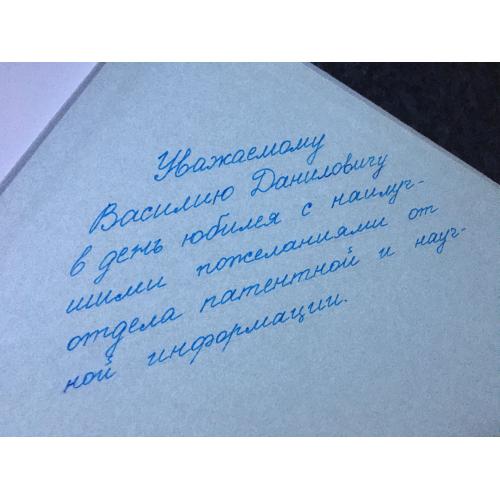 Уважаемому
Василию Даниловичу
в день юбилея с наилуч-
шими пожеланиями от
отдела патентной и науч-
ной информации.